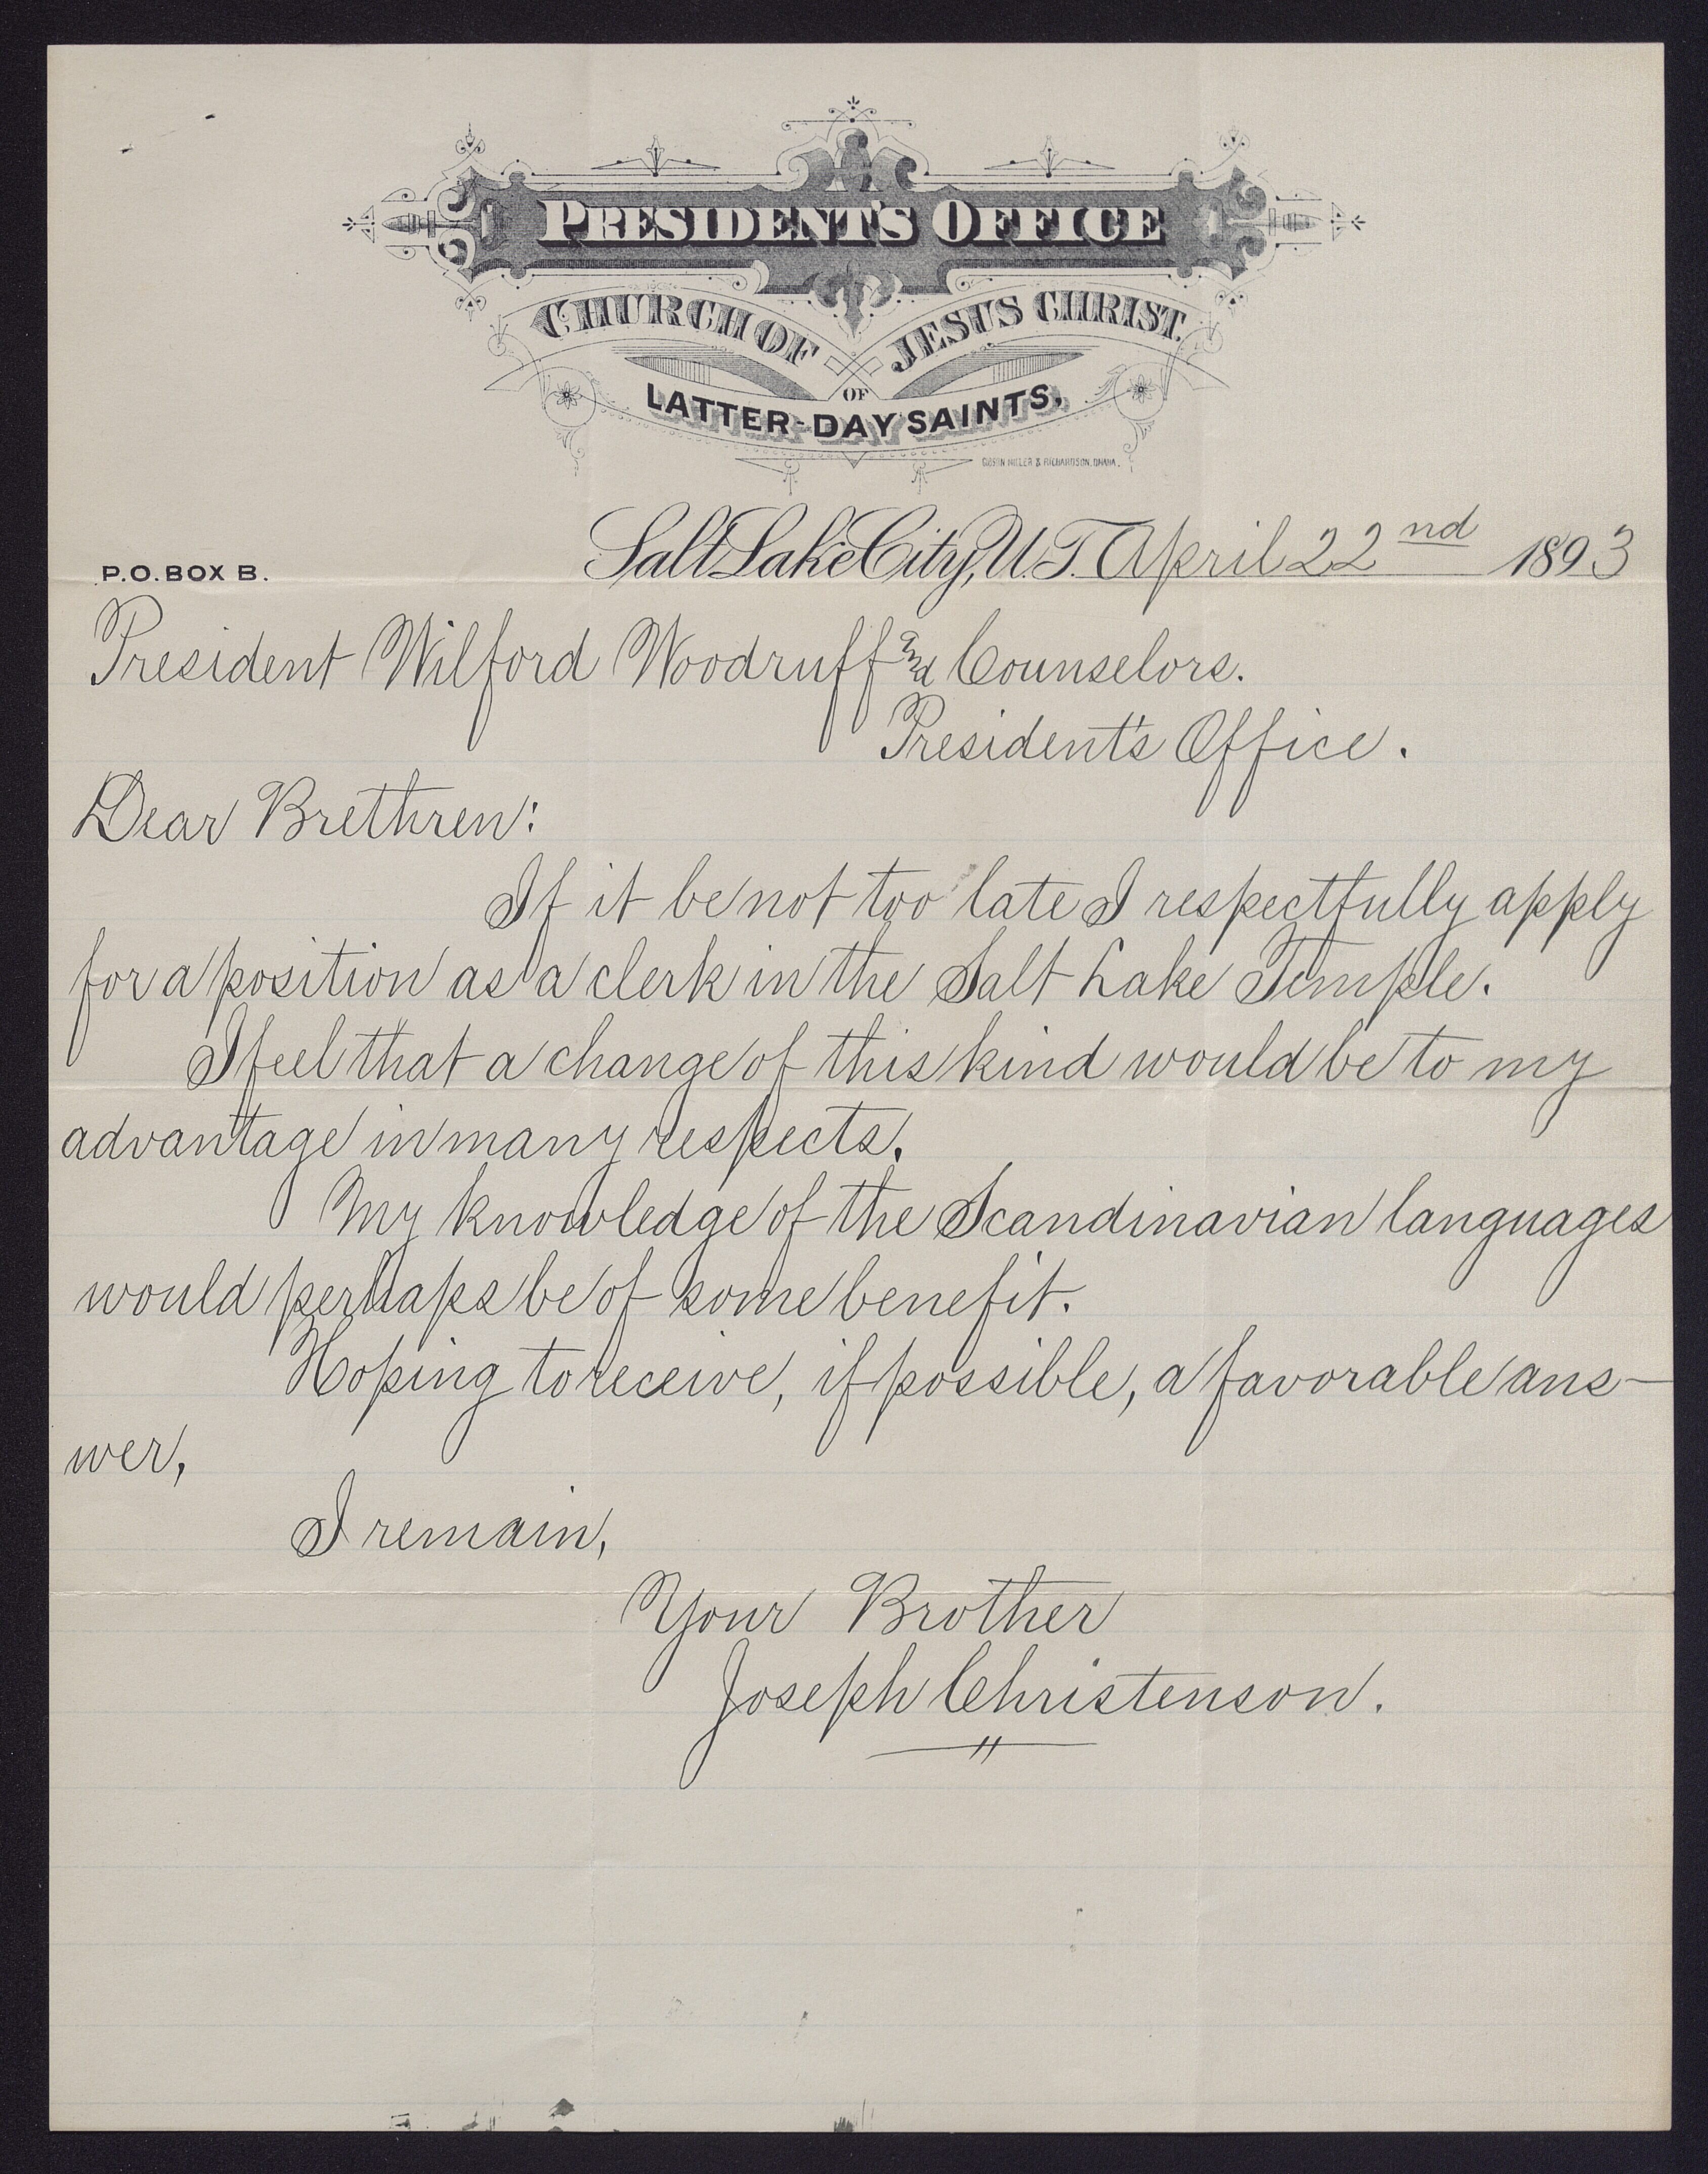 PRESIDENT'S OFFICE
CHURCH OF JESUS CHRIST.
OF
LATTER-DAY SAINTS.
GIBSON MILLER & RICHARDSON, OMAHA.
P.O. BOX B.
Salt Lake City, U.T. April 22nd 1893
President Wilford Woodruff and Counselors.
President's Office.
Dear Brethren:
If it be not too late I respectfully apply
for a position as a clerk in the Salt Lake Temple.
I feel that a change of this kind would be to my
advantage in many respects.
My knowledge of the Scandinavian languages
would perhaps be of some benefit.
Hoping to receive, if possible, a favorable ans-
wer,
I remain,
Your Brother
Joseph Christenson.